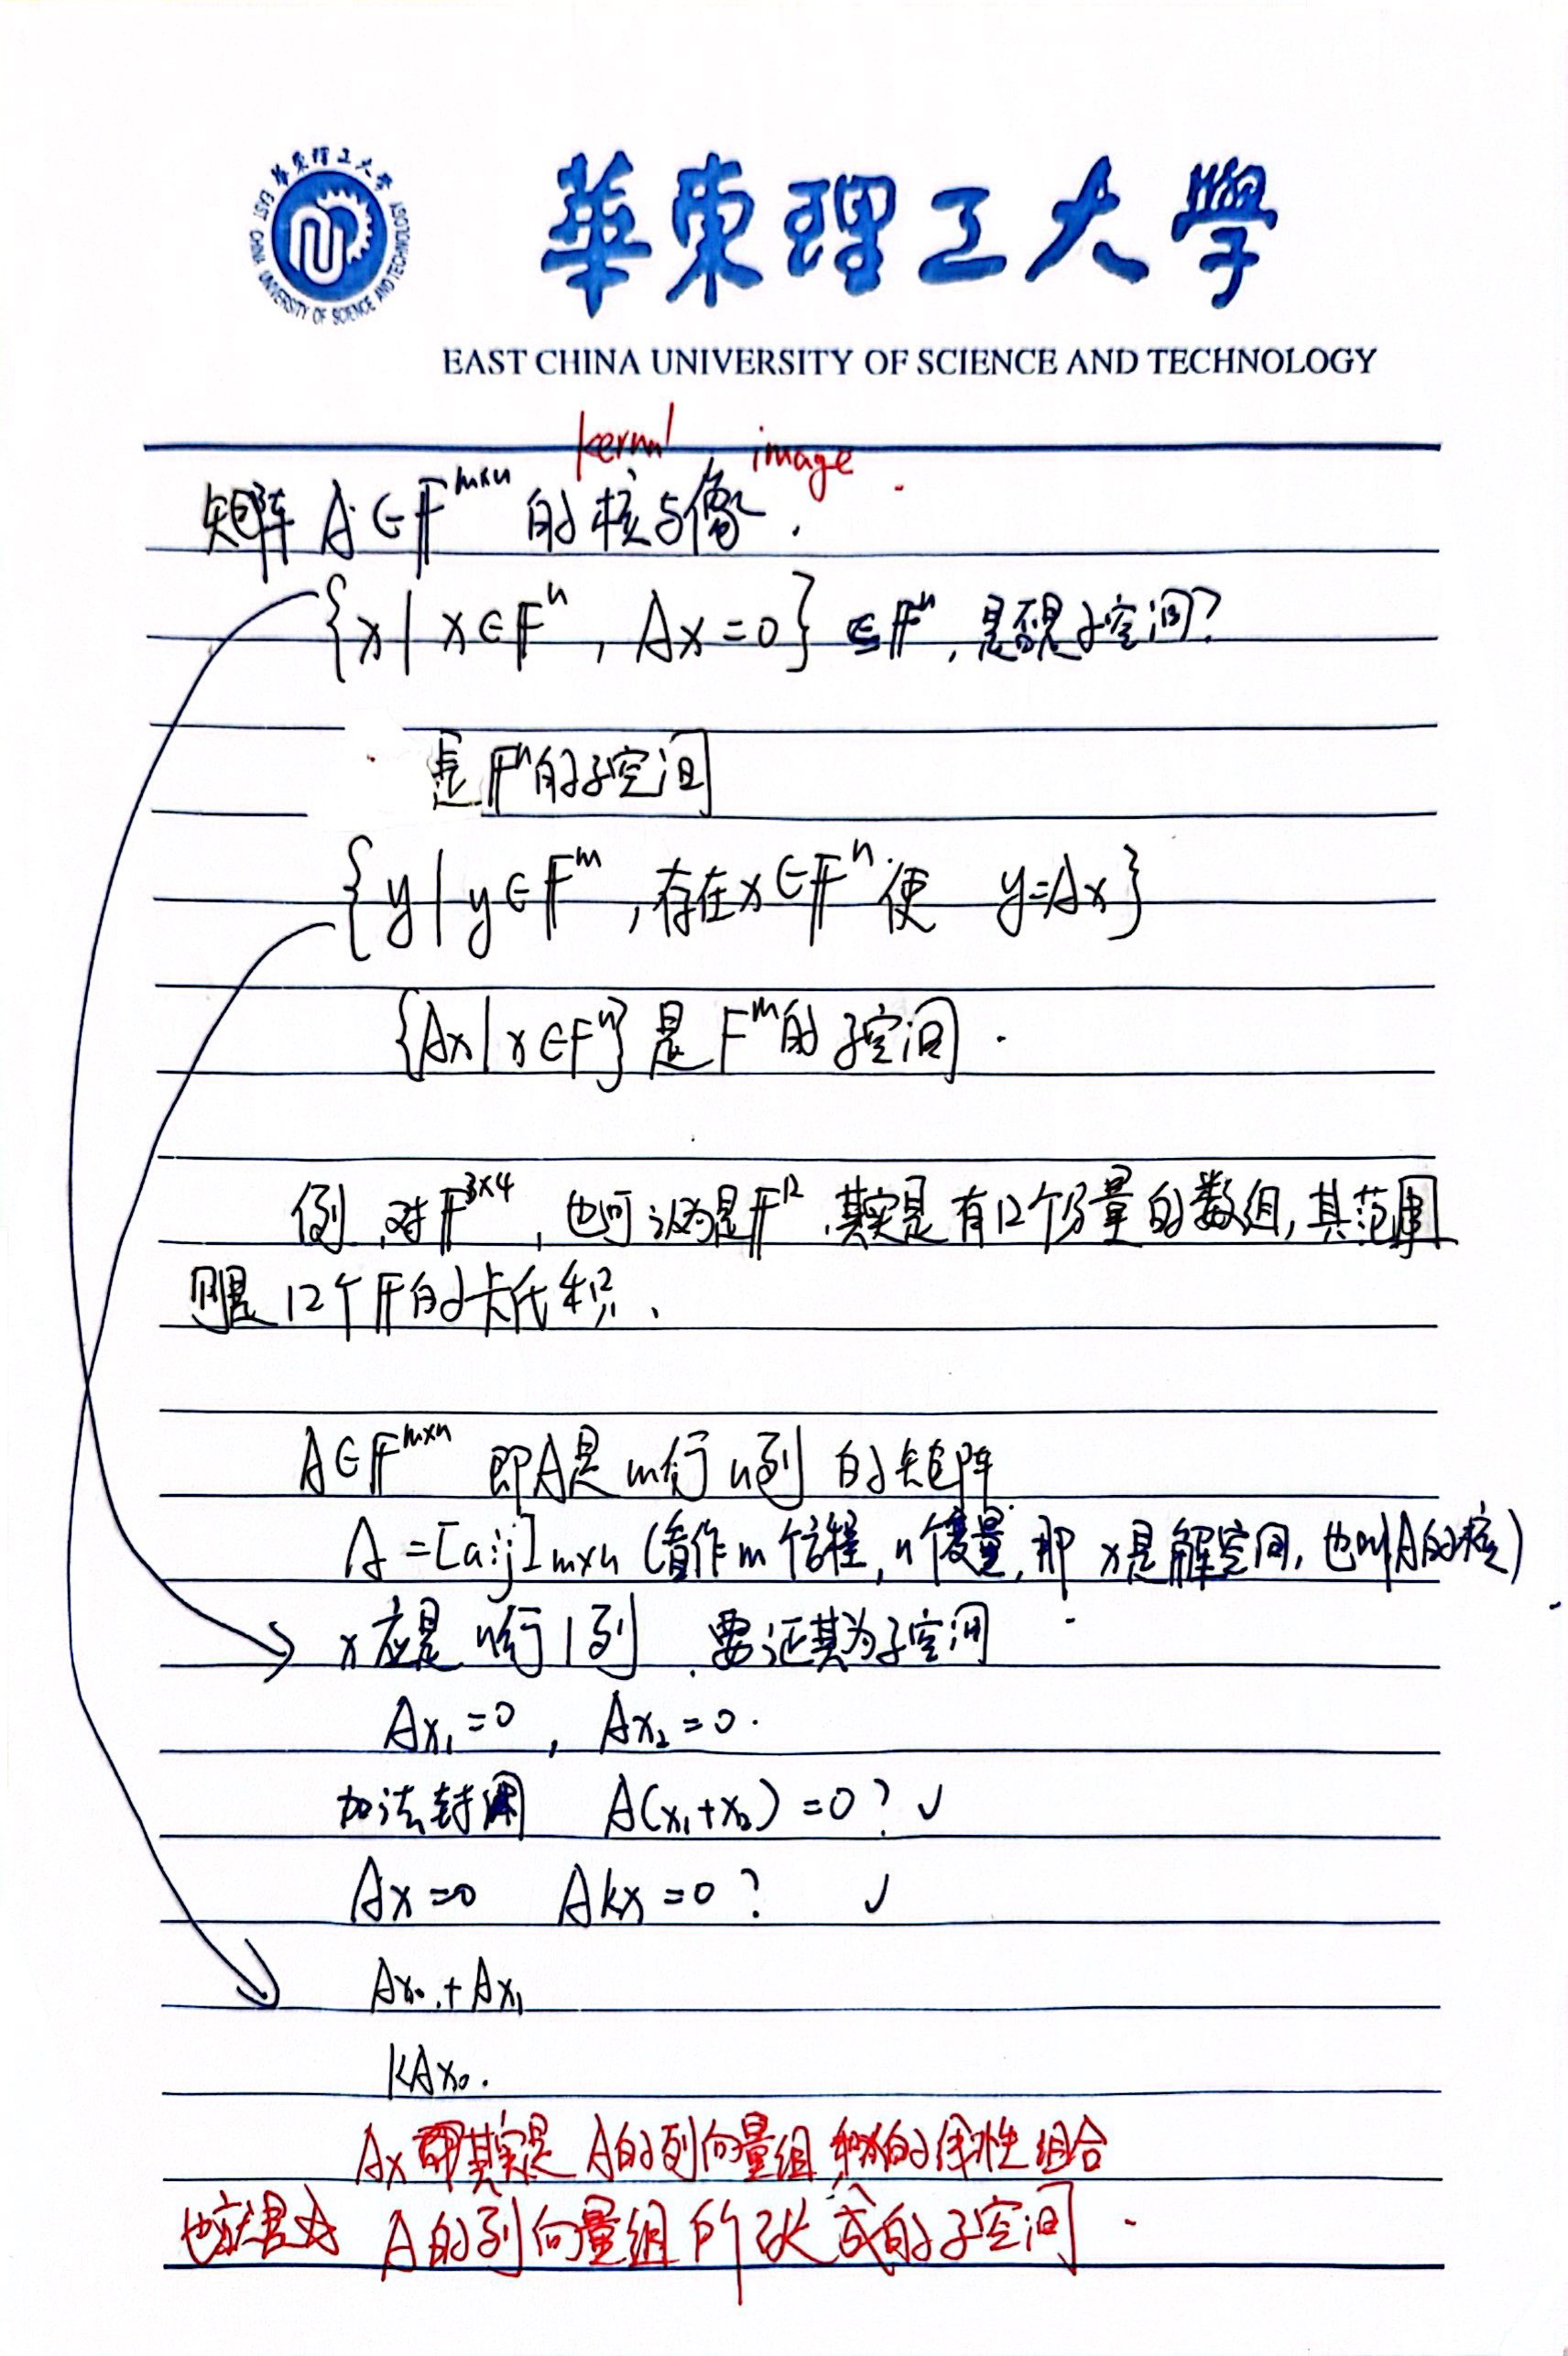 華東理工大學
EAST CHINA UNIVERSITY OF SCIENCE AND TECHNOLOGY
kernel image
矩阵 A∈F^{m×n} 的核与像.
{x | x∈F^n, Ax=0} ⊆ F^n, 是否是子空间?
是 F^n 的子空间
{y | y∈F^m, 存在x∈F^n 使 y=Ax}
{Ax | x∈F^n} 是 F^m 的子空间.
例, 对 F^{3×4}, 也可认为是 F^{12}, 其实是有12个分量的数组, 其范围
则是 12个 F 的卡氏积.
A∈F^{m×n} 即A是 m行 n列 的矩阵
A=[aij]m×n (看作 m 个方程, n个变量, 那 x是解空间, 也叫A的核)
x应是 n行1列, 要证其为子空间
Ax₁=0, Ax₂=0.
加法封闭 A(x₁+x₂)=0? ✓
Ax=0 Akx=0? ✓
Ax₀+Ax₁
kAx₀.
Ax 其实是 A的列向量组 的线性组合
也就是 A的列向量组所张成的子空间.